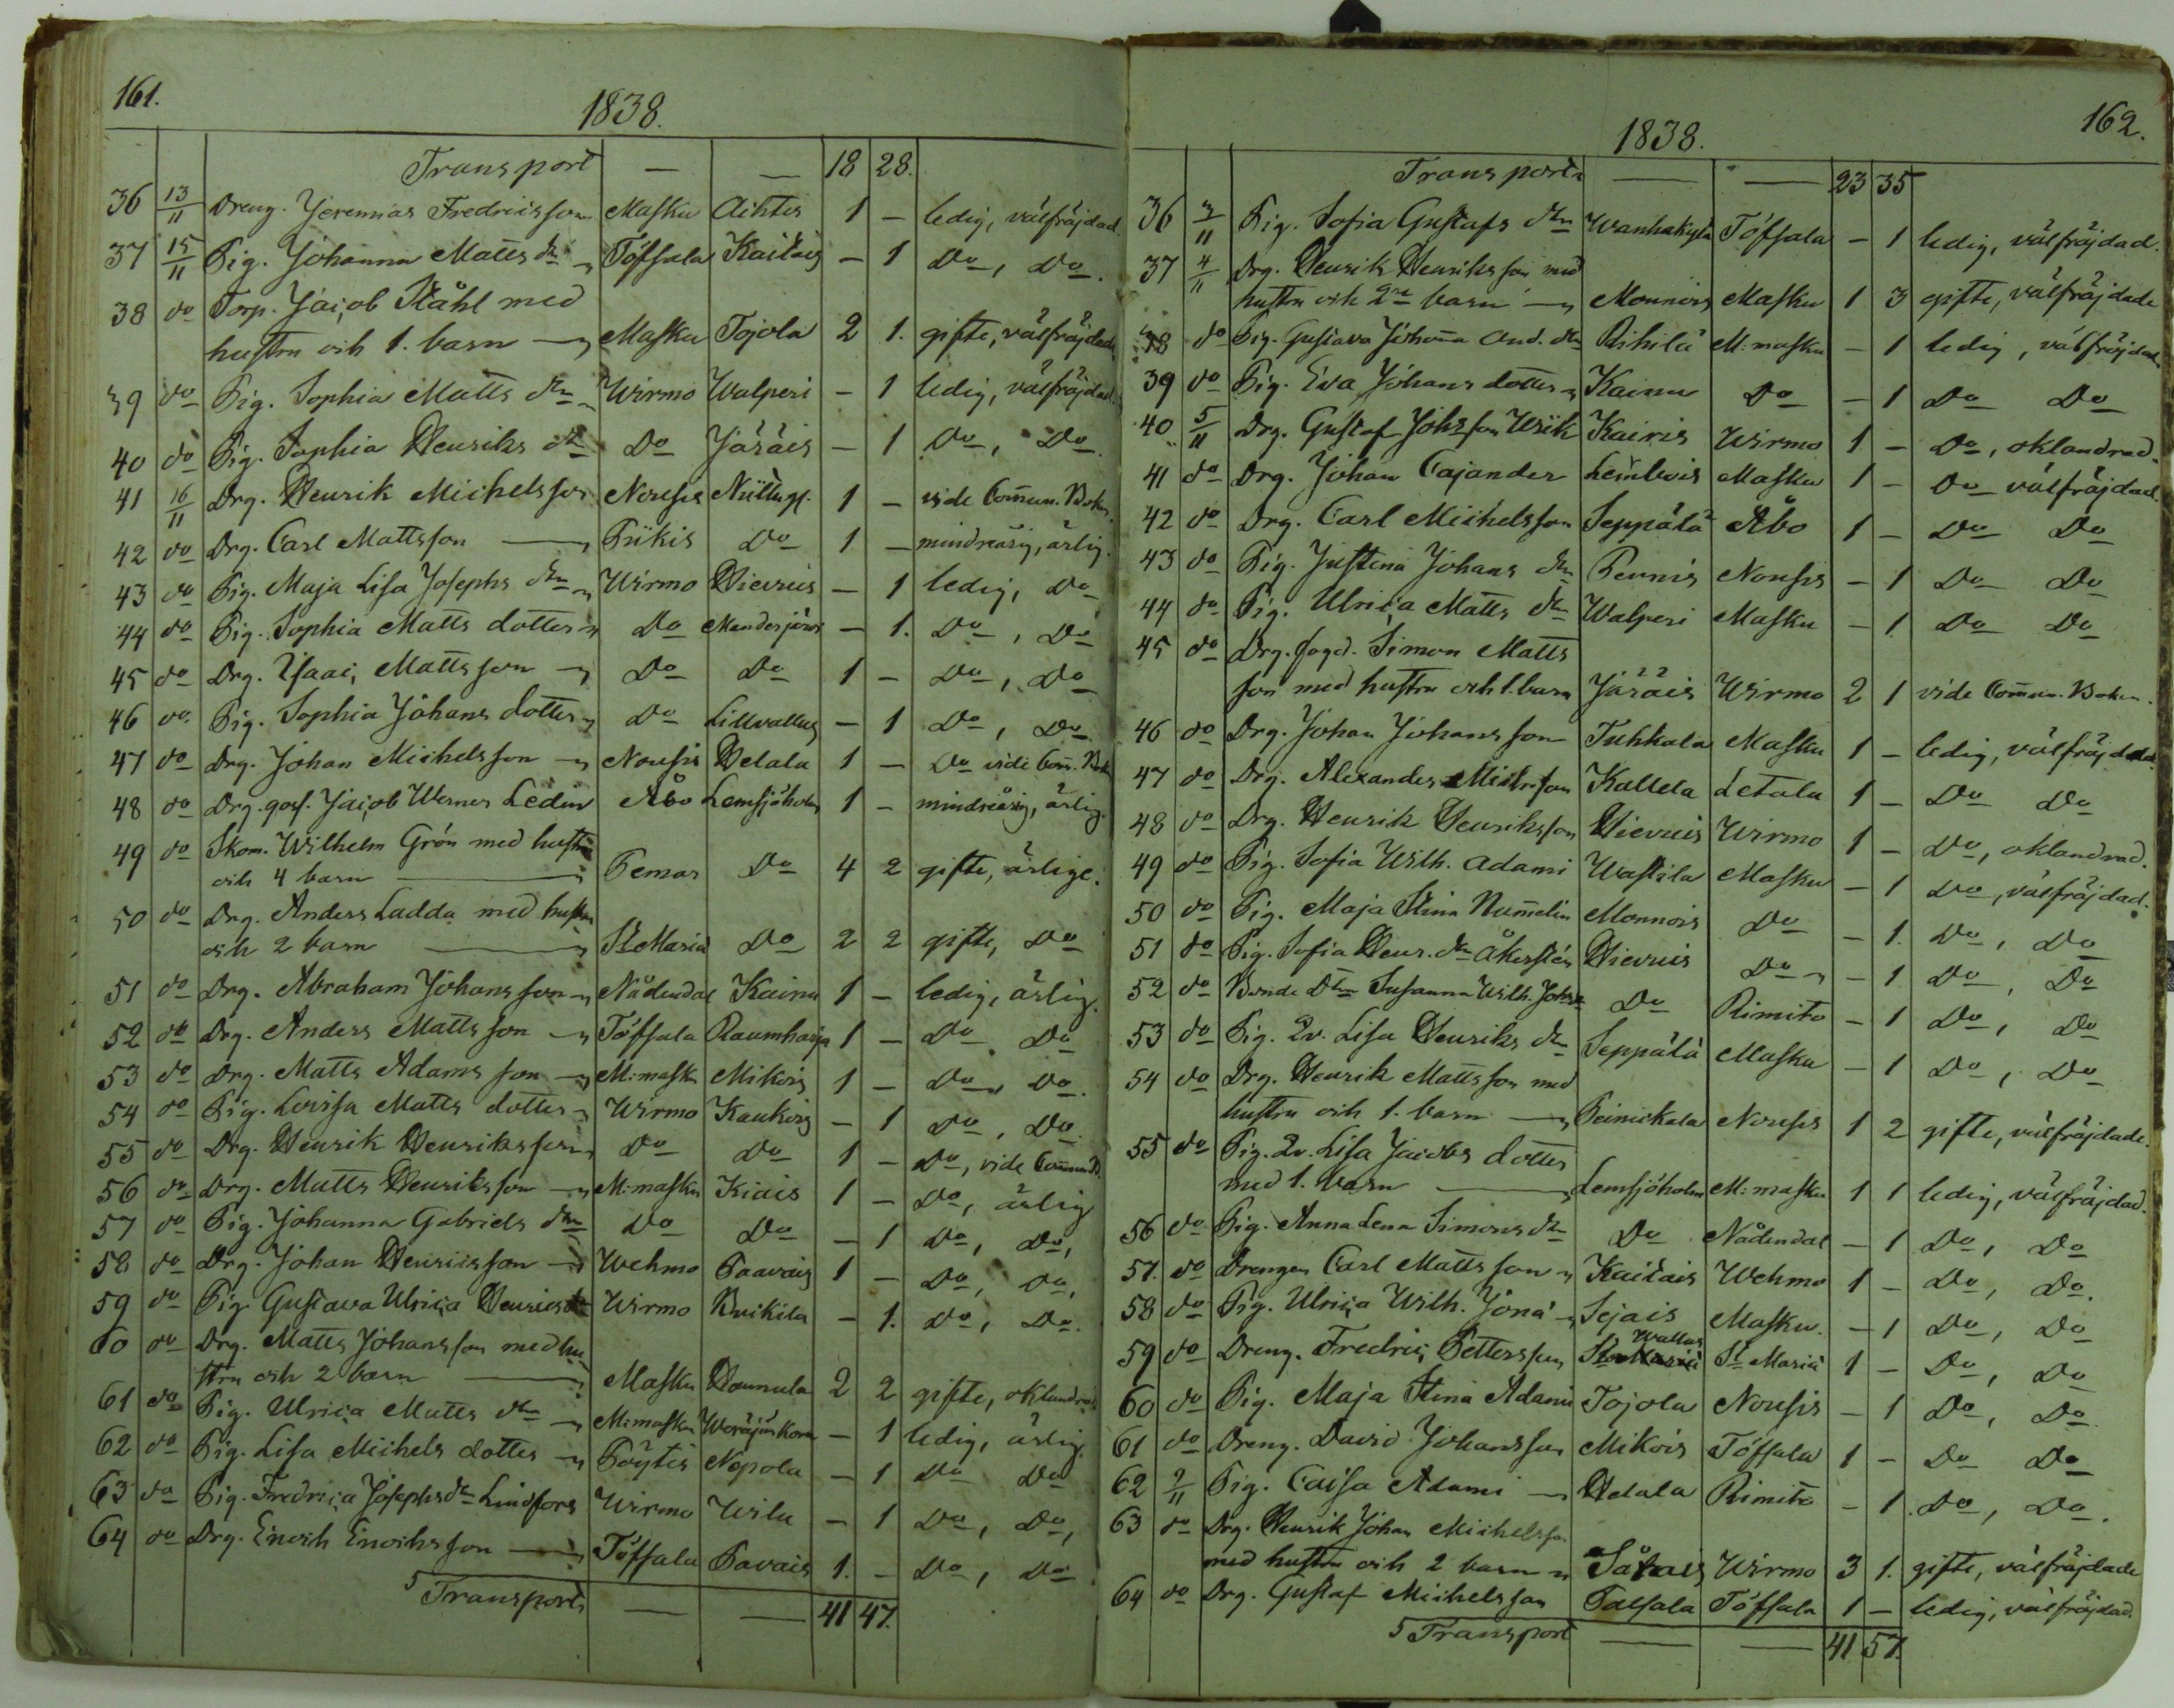 161.
1838.
Transport — — 18 28.
36 13/11 Dreng. Jeremias Fredricsson Masku Aihtis 1 – ledig, välfräjdad.
37 15/11 Pig. Johanna Matts dtr Töfsala Kaitais – 1 Do, Do.
38 do Torp. Jacob Ståhl med
hustru och 1. barn Masku Tojola 2 1. gifte, välfräjdade
39 do Pig. Sophia Matts dtr Wirmo Walperi – 1 ledig, välfräjdad.
40 do Pig. Sophia Henriks dtr Do Järäis – 1 Do, Do.
41 16/11 Drg. Henrik Michelsson Nousis 1 – vide Com̄un. Boken.
42 do Drg. Carl Mattsson Piikis Do 1 – mindreårig, ärlig.
43 do Pig. Maja Lisa Josephs dtr Wirmo Hievuis – 1 ledig, Do
44 do Pig. Sophia Matts dotter Do – 1. Do, Do
45 do Drg. Isaac Mattsson Do Do 1 – Do, Do
46 do Pig. Sophia Johans dotter Do Lillvallus – 1 Do, Do.
47 do Drg. Johan Michelsson Nousis Helala 1 – Do vide Com̄. Bok
48 do Drg. gos. Jacob Werner Ledin Åbo Lemsjöholm 1 – mindreårig, ärlig.
49 do Skom. Wilhelm Grön med hustru
och 4 barn Pemar Do 4 2 gifte, ärlige.
50 do Drg. Anders Ladda med hustru
och 2 barn St Maria Do 2 2 gifte, Do
51 do Drg. Abraham Johansson Nådendal Kainu 1 – ledig, ärlig.
52 do Drg. Anders Mattsson Töfsala Raumharja 1 – Do Do
53 do Drg. Matts Adamsson M:masku Mikois 1 – Do, Do.
54 do Pig. Lovisa Matts dotter Wirmo Kaukois – 1 Do, Do.
55 do Drg. Henrik Henriksson Do Do 1 – Do, vide Com̄un B.
56 do Drg. Matts Henriksson M:masku Kiais 1 – Do, ärlig
57 do Pig. Johanna Gabriels dtr Do Do – 1 Do, Do,
58 do Drg. Johan Henricsson Wehmo Paavais 1 – Do, Do,
59 do Pig. Gustava Ulrica Henricsdtr Wirmo Kuikila – 1. Do, Do.
60 do Drg. Matts Johansson med hu
stru och 2 barn Masku Hannula 2 2 gifte, oklandrad.
61 do Pig. Ulrica Matts dtr M:masku – 1 ledig, ärlig.
62 do Pig. Lisa Michels dotter Pöytis Nopola – 1 Do Do
63 do Pig. Fredrica Josephsdtr Lindfors Wirmo Wilu – 1 Do, Do,
64 do Drg. Enoch Enochsson Töfsala Pavais 1. – Do, Do
Transport — — 41 47.
162.
1838.
Transport — — 23 35
36 3/11 Pig. Sofia Gustafs dtr Wanhakylä Töfsala – 1 ledig, välfräjdad.
37 4/11 Drg. Henrik Henriksson med
hustru och 2ne barn Monnois Masku 1 3 gifte, välfräjdade
38 do Pig. Gustava Johan̄a And. dtr Rihilä M:masku – 1 ledig, välfräjdad.
39 do Pig. Eva Johans dotter Kainu Do – 1 Do Do
40 5/11 Drg. Gustaf Johsson Wiik Kairis Wirmo 1 – Do, oklandrad.
41 do Drg. Johan Cajander Lembois Masku 1 – Do välfräjdad.
42 do Drg. Carl Michelsson Seppälä Åbo 1 – Do Do
43 do Pig. Justina Johans dtr Pernis Nousis – 1 Do Do
44 do Pig. Ulrica Matts dtr Walperi Masku – 1 Do Do
45 do Drg. fogd. Simon Matts
son med hustru och 1. barn Järäis Wirmo 2 1 vide Com̄un. Boken.
46 do Drg. Johan Johansson Tuhkala Masku 1 – ledig, välfräjdad.
47 do Drg. Alexander Michelsson Kallela Letala 1 – Do Do
48 do Drg. Henrik Henriksson Hievuis Wirmo 1 – Do, oklandrad.
49 do Pig. Sofia Wilh. Adami Wastila Masku – 1 Do, välfräjdad.
50 do Pig. Maja Stina Num̄elin Monnois Do – 1. Do, Do
51 do Pig. Sofia Henr. dtr Åkerstén Hievuis Do – 1 Do, Do
52 do Bonde Dtr Susanna Wilh. Johsd Do Rimito – 1 Do, Do
53 do Pig. Qv. Lisa Henriks dtr Seppälä Masku – 1 Do, Do
54 do Drg. Henrik Mattsson med
hustru och 1. barn Peinikala Nousis 1 2 gifte, välfräjdade.
55 do Pig. Qv. Lisa Jacobs dotter
med 1. barn Lemsjöholm M:masku 1 1 ledig, välfräjdad.
56 do Pig. Anna Lena Simons dtr Do Nådendal – 1 Do, Do
57. do Drengen Carl Mattsson Kaitais Wehmo 1 – Do, Do.
58 do Pig. Ulrica Wilh. Jona Sejais Masku. – 1 Do, Do
59 do Dreng. Fredric Pettersson Wallus St Mariä 1 – Do, Do
60 do Pig. Maja Stina Adami Tojola Nousis – 1 Do, Do.
61 do Dreng. David Johansson Mikois Töfsala 1 – Do Do
62 7/11 Pig. Caisa Adami Helala Rimito – 1. Do, Do.
63 do Drg. Henrik Johan Michelsson
med hustru och 2 barn Wirmo 3 1. gifte, välfräjdade
64 do Drg. Gustaf Michelsson Palsala Töfsala 1 – ledig, välfräjdad.
Transport — — 41 57.